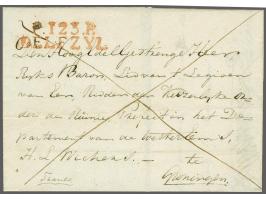 123 P.
DELFZYL.
Den Hoog Edel Gestrenge Heer
Ryks Baron, Lid van t Legioen
van Eer, Ridder der Keizerlyke Or
der de Réunie, Prefect in het De
partement van de Wester Eems,
H. L. Wichers.
te
Groningen
Franco